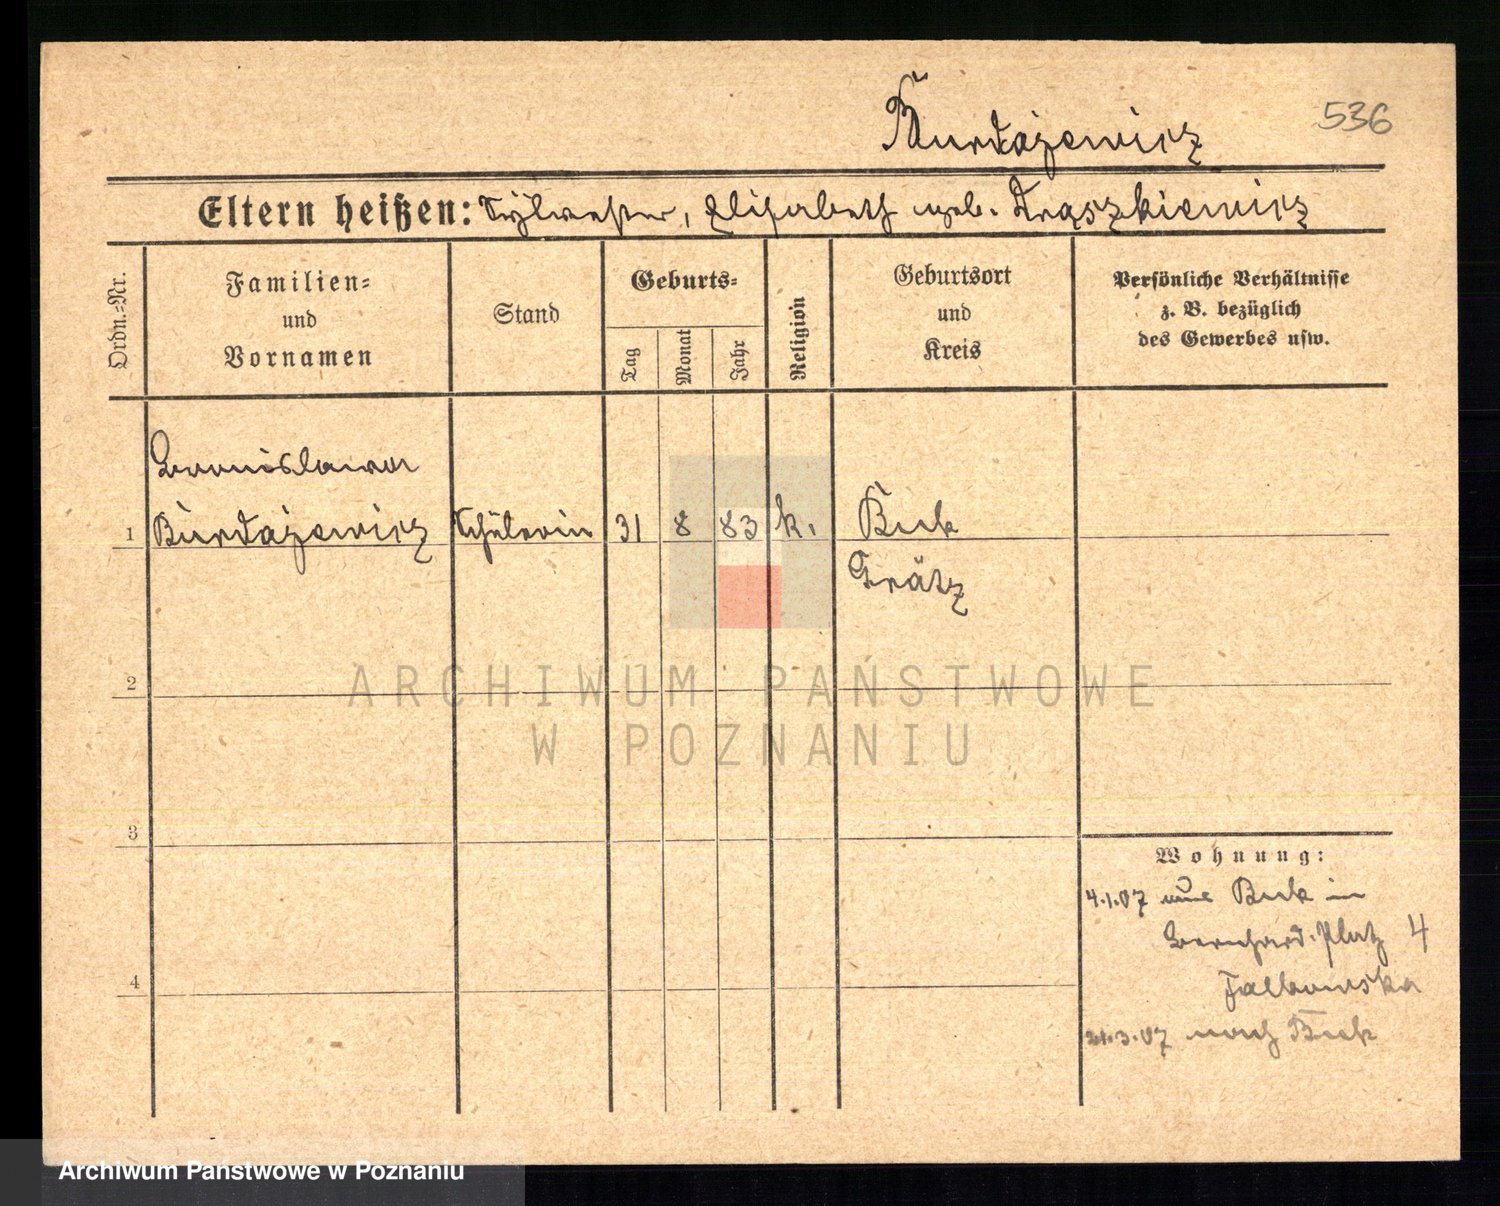 Burdajewicz
536
Eltern heißen: Sylvester, Elisabeth geb.
Ordn.-Nr.
Familien-
und
Vornamen
Stand
Geburts-
Tag
Monat
Jahr
Religion
Geburtsort
und
Kreis
Persönliche Verhältnisse
z. B. bezüglich
des Gewerbes usw.
Bronislawa
1 Burdajewicz Schülerin 31 8 83 k. Buk
Grätz
2
3
4
Wohnung:
4.1.07 aus Buk in
Bernhard.Platz 4
Falkowska
21.3.07 nach Buk
ARCHIWUM PAŃSTWOWE
W POZNANIU
Archiwum Państwowe w Poznaniu